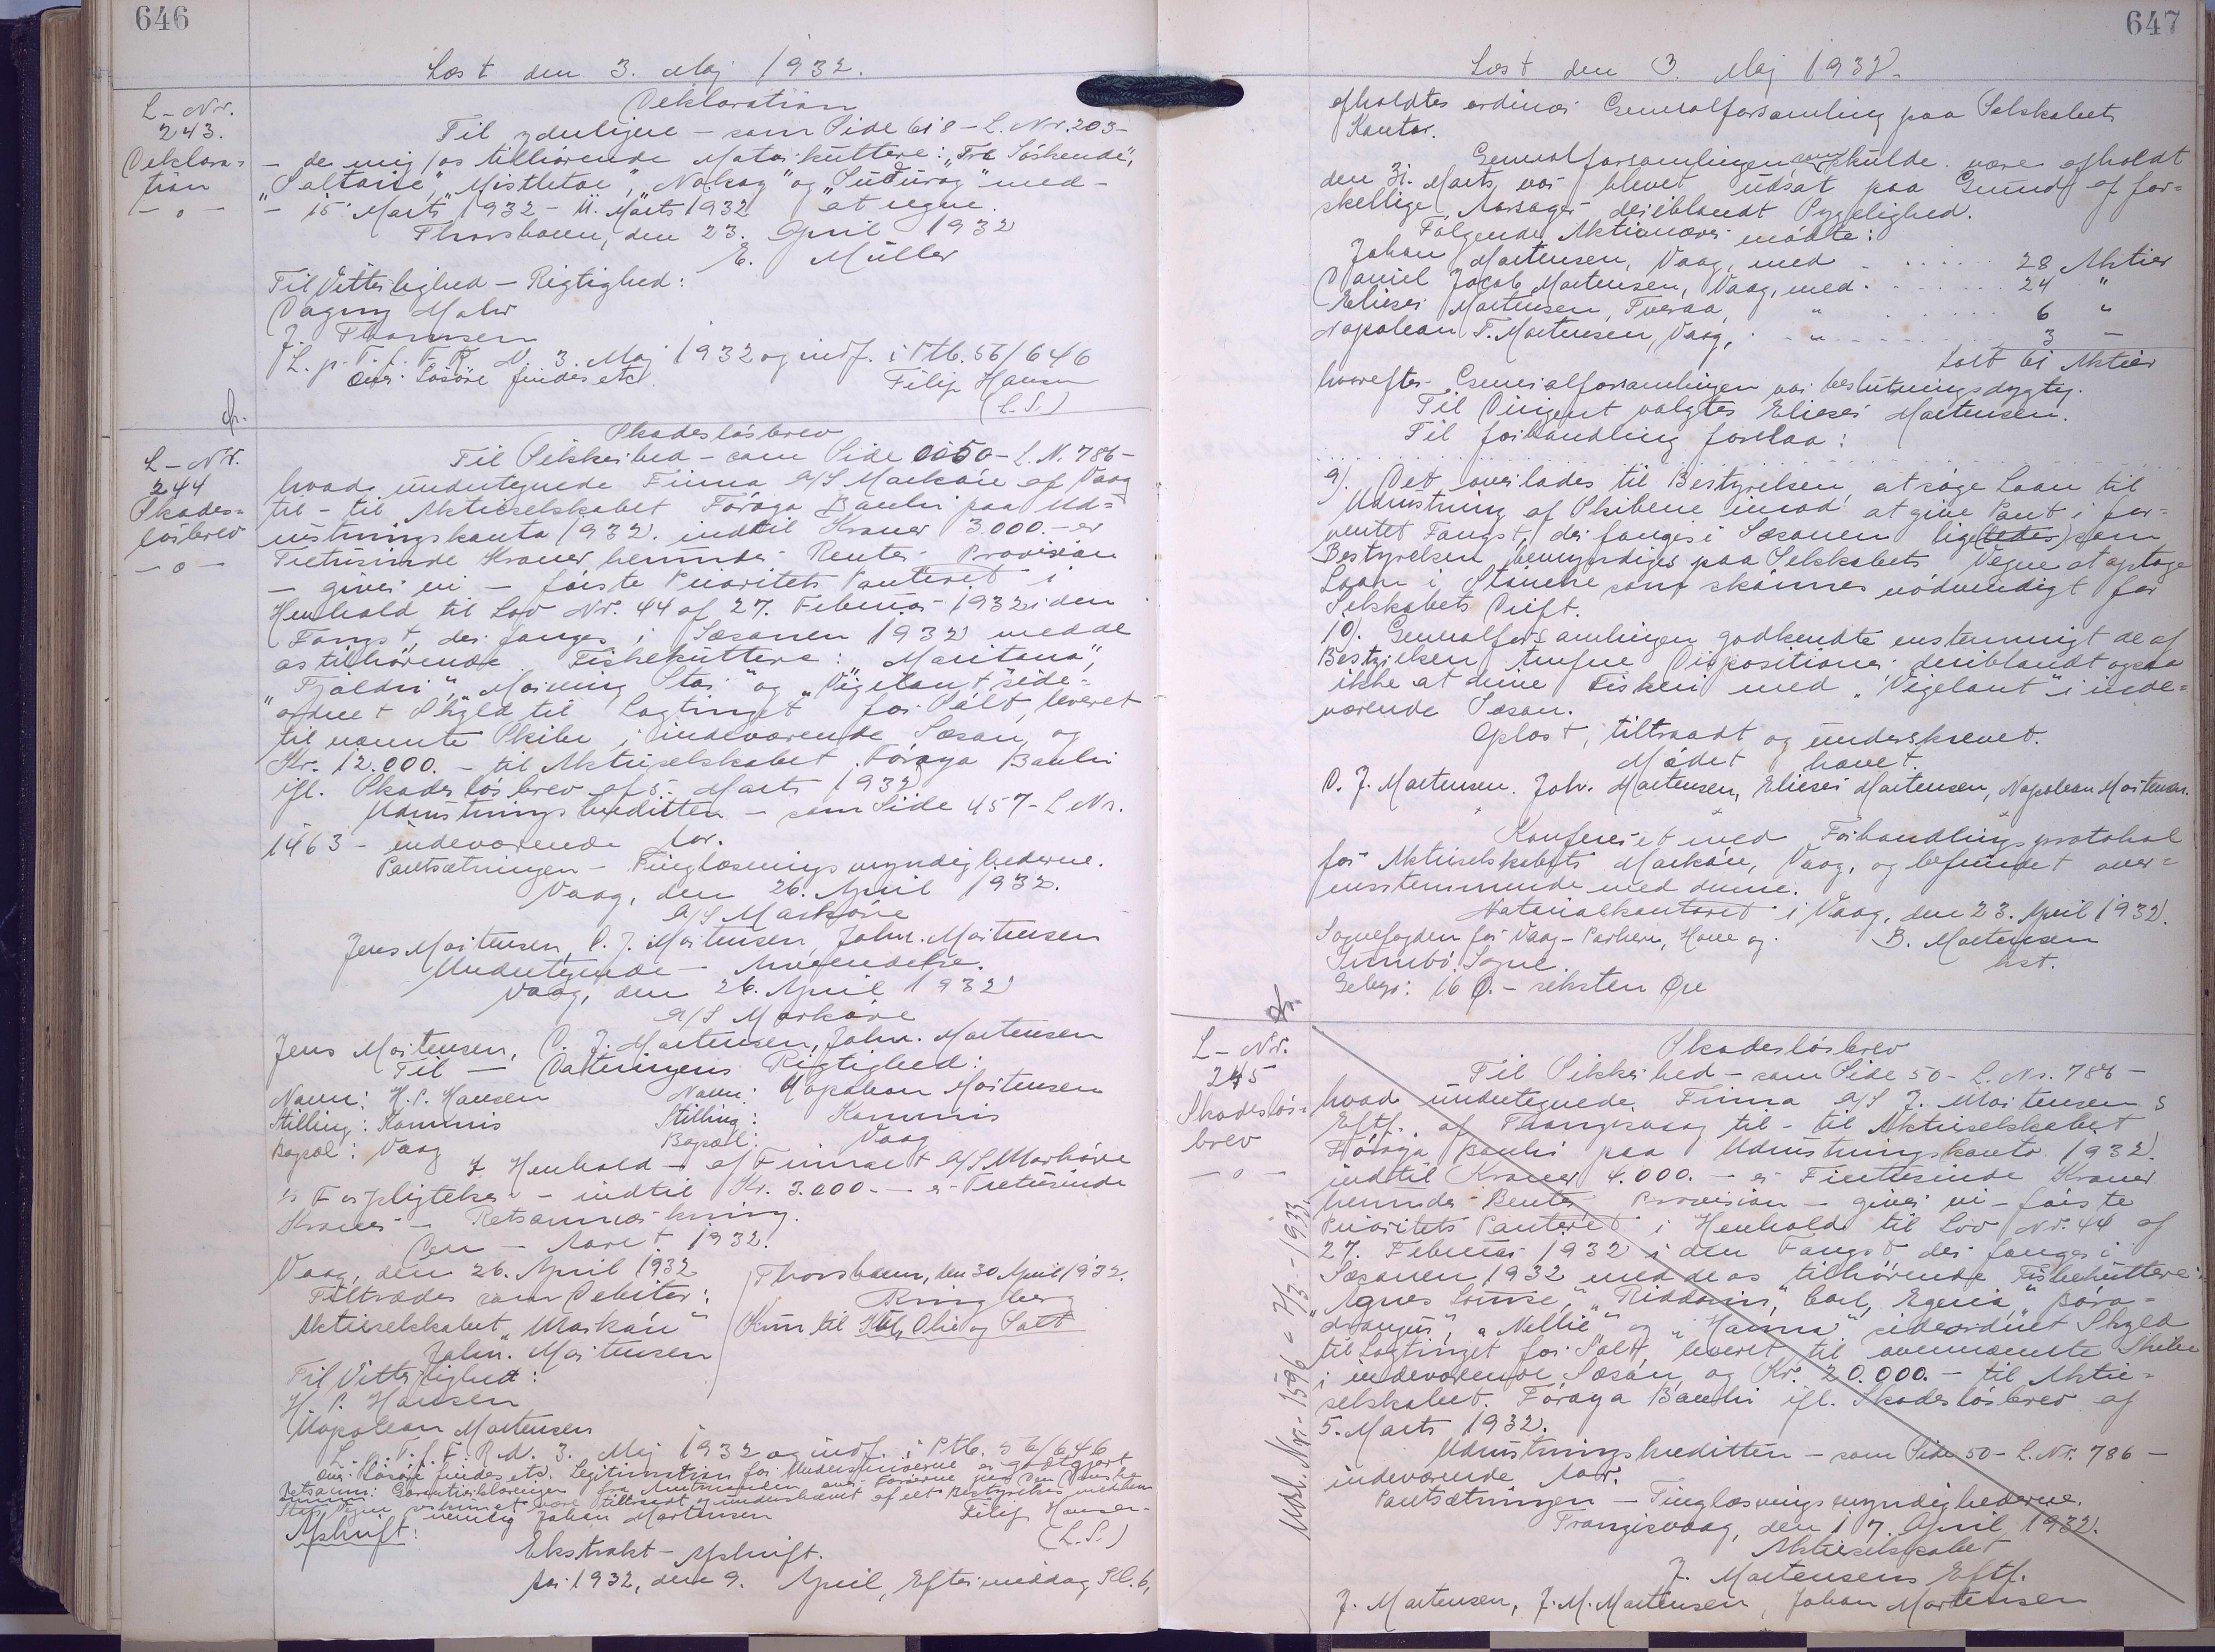 646
Læst den 3. Maj 1932.
L-Nr.
243.
Deklara=
tion
— o —
Deklaration
Til yderligere – som Side 618 – L. Nr. 203 –
– de mig/os tilhørende Motorkuttere: „Tre Söskende",
„Saltaire", „Mistletoe", „Nakog" og „Suðuroy" med –
– 15. Marts 1932 – 11. Marts 1932 at regne.
Thorshavn, den 23. April 1932
E. Müller
Til Vitterlighed – Rigtighed:
Dagny Mohr
J. Thomsen
L. p. T. f. F. R. d. 3. Maj 1932 og indf. i Ptb. 56/646
Over Løsöre findes etc.
Filip Hansen
(L.S.)
L-Nr.
244
Skades=
lösbrev
— o —
Skadeslösbrev
Til Sikkerhed – som Side 50 – L. N. 786 –
hvad undertegnede Firma A/S Markáie af Vaag
til – til Aktieselskabet Föroya Banki paa Ud=
rustningskonto 1932. indtil Kroner 3.000. – er
Tretusinde Kroner, herunder Renter Provision
– giver vi – förste Prioritets Panteret i
Henhold til Lov Nr. 44 af 27. Februar 1932 i den
Fangst, der fanges i Sæsonen 1932 med de
os tilhörende Fiskekuttere: „Maritana",
„Fjaldri", „Morning Star" og „Vigilant" side=
ordnet Skyld til Lagtinget for Salt, leveret
til nævnte Skibe i indeværende Sæson, og
Kr. 12.000. – til Aktieselskabet Föroya Banki
ifl. Skadeslösbrev af 5. Marts 1932
Udrustningskreditten – som Side 457 – L Nr.
1463 – indeværende Aar.
Pantsætningen – Tinglæsningsmyndighederne.
Vaag, den 26. April 1932.
A/S Markáie
Jens Mortensen, D. J. Mortensen, John. Mortensen
Undertegnede – Anvendelse.
Vaag, den 26. April 1932
A/S Markáie
Jens Mortensen, D. J. Mortensen, John. Mortensen
Til — Dateringens Rigtighed:
Navn: H. P. Hansen Navn: Napoleon Mortensen
Stilling: Kommis Stilling: Kommis
Bopæl: Vaag Bopæl: Vaag
I Henhold – af Firmaet A/S Markáie
's Forpligtelser – indtil Kr. 3.000. – er Tretusinde
Kroner – Retsanmærkning.
Den – Aaret 1932.
Vaag, den 26. April 1932
Tiltrædes som Debitor:
Aktieselskabet „Markáie"
John. Mortensen
Thorshavn, den 30 April 1932.
Ringberg
Kun til Kul, Olie og Salt
Til Vitterlighed:
H. P. Hansen
Napoleon Mortensen
L. p. T. f. F. R. d. 3. Maj 1932 og indf. i Ptb. 56/646
Over Lösöre findes etc. Legitimation for Underskriverne er godtgjort
Retsanm: Garantierklæringen fra Amtmanden over Færøerne paa Den Danske
Stats Vegne være tiltraadt og underskrevet af eet Bestyrelses medlem
nemlig Johan Mortensen
Filip Hansen
(L.S.)
Afskrift:
Ekstrakt – Afskrift.
Aar 1932, den 9. April, Eftermiddag Kl. 6,
647
Læst den 3. Maj 1932.
afholdtes ordinær Generalforsamling paa Selskabets
Kontor.
Generalforsamlingen, som skulde være afholdt
den 31. Marts var blevet udsat paa Grund af for=
skellige Aarsager deriblandt Sygelighed.
Følgende Aktionærer mødte:
Johan Mortensen, Vaag, med . . . . 28 Aktier
Daniel Jacob Mortensen, Vaag, med . . . . 24 "
Elieser Mortensen, Tveraa, " . . . . 6 "
Napoleon T. Mortensen, Vaag, " . . . . 3 –
talt 61 Aktier
hvorefter Generalforsamlingen var beslutningsdygtig.
Til Dirigent valgtes Elieser Mortensen.
Til forhandling forelaa:
9). Det overlades til Bestyrelsen, at søge Laan til
Udrustning af Skibene imod at give Pant i for=
ventet Fangst, der fanges i Sæsonen lige(ledes) som
Bestyrelsen bemyndiges paa Selskabets Vegne at optage
Laan i Skibene som skönnes nödvendigt for
Selskabets Drift.
10). Generalforsamlingen godkendte enstemmigt de af
Bestyrelsen trufne Dispositioner deriblandt ogsaa
ikke at drive Fiskeri med „Vigelant" i inde=
værende Sæson.
Oplæst, tiltraadt og underskrevet.
Mödet hævet.
D. J. Mortensen. Joh. Mortensen, Elieser Mortensen, Napoleon Mortensen.
Konfereret med Forhandlingsprotokol
for Aktieselskabet Markáie, Vaag, og befundet over=
ensstemmende med denne.
Notarialkontoret i Vaag, den 23. April 1932.
Sognefogden for Vaag – Porkeri, Hove og
Sumbö Sogne.
B. Mortensen
kst.
Gebyr: 16 Ø. – seksten Øre
L-Nr.
245
Skadeslös=
brev
— o —
Udsl. Nr. 1596 – 7/3 – 1933
Skadeslösbrev
Til Sikkerhed – som Side 50 – L. Nr. 786 –
hvad undertegnede Firma A/S J. Mortensens
Eftf. af Trangisvaag til – til Aktieselskabet
Föroya Banki paa Udrustningskonto 1932.
indtil Kroner 4.000. – er Firetusinde Kroner
herunder Renter Provision – giver vi – förste
Prioritets Panteret i Henhold til Lov Nr. 44 af
27. Februar 1932 i den Fangst der fanges i
Sæsonen 1932 med de os tilhörende Fiskekuttere:
„Agnes Louise", „Riddarin", Carl, Egeria, „Bóra=
drangur", „Nellie" og „Hanna" sideordnet Skyld
til Lagtinget for Salt, leveret til ovennævnte Skibe
i indeværende Sæson, og Kr. 20.000. – til Aktie=
selskabet Föroya Banki ifl. Skadeslösbrev af
5. Marts 1932.
Udrustningskreditten – som Side 50 – L. Nr. 786 –
indeværende Aar.
Pantsætningen – Tinglæsningsmyndighederne.
Trangisvaag, den 17. April 1932.
Aktieselskabet
J. Mortensens Eftf.
J. Mortensen, J. M. Mortensen, Johan Mortensen